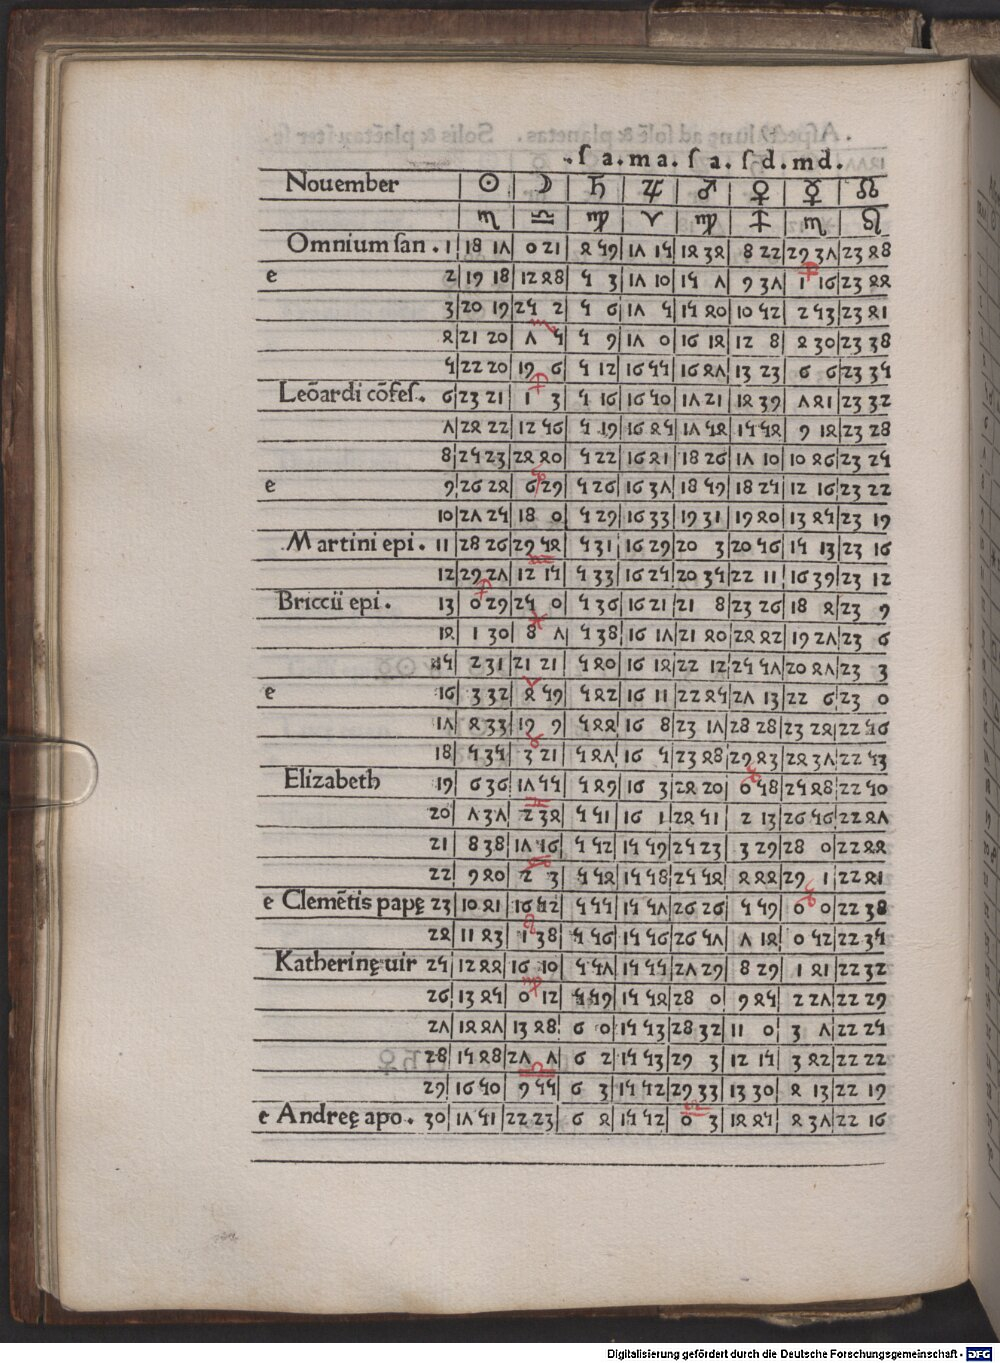 . ſ a . m a . ſ a . ſ d . m d .
Nouember ☉ ☽ ♄ ♃ ♂ ♀ ☿ ☊
♏ ♎ ♍ ♈ ♍ ♐ ♏ ♌
Omnium ſan . 1 18 17 0 21 4 59 17 15 14 34 8 22 29 37 23 48
♐
e 2 19 18 12 48 5 3 17 10 15 7 9 37 1 16 23 44
3 20 19 25 2 5 6 17 5 15 40 10 52 2 53 23 41
♏
4 21 20 7 5 5 9 17 0 16 14 12 8 4 30 23 38
5 22 20 19 6 5 12 16 55 16 47 13 23 6 6 23 35
♐
Leōardi cōfeſ . 6 23 21 1 3 5 16 16 50 17 21 14 39 7 41 23 32
7 24 22 12 56 5 19 16 45 17 54 15 54 9 14 23 28
8 25 23 24 40 5 22 16 41 18 26 17 10 10 46 23 25
♑
e 9 26 24 6 29 5 26 16 37 18 59 18 25 12 16 23 22
10 27 25 18 0 5 29 16 33 19 31 19 40 13 45 23 19
Martini epi . 11 28 26 29 54 5 31 16 29 20 3 20 56 15 13 23 16
♒
12 29 27 12 15 5 33 16 25 20 35 22 11 16 39 23 12
♐
Briccii epi . 13 0 29 25 0 5 36 16 21 21 8 23 26 18 4 23 9
♓
14 1 30 8 7 5 38 16 17 21 40 24 42 19 27 23 6
15 2 31 21 21 5 40 16 14 22 12 25 57 20 47 23 3
♈
e 16 3 32 4 59 5 42 16 11 22 45 27 13 22 6 23 0
17 4 33 19 9 5 44 16 8 23 17 28 28 23 24 22 56
♉
18 5 35 3 21 5 47 16 5 23 48 29 43 24 37 22 53
♑
Elizabeth 19 6 36 17 55 5 49 16 3 24 20 0 58 25 48 22 50
♊
20 7 37 2 34 5 51 16 1 24 51 2 13 26 56 22 47
21 8 38 17 16 5 52 15 59 25 23 3 29 28 0 22 44
♋
22 9 40 2 3 5 54 15 58 25 54 4 44 29 1 22 41
♑
e Clemētis papę 23 10 41 16 52 5 55 15 57 26 26 5 59 0 0 22 38
♌
24 11 43 1 38 5 56 15 56 26 57 7 14 0 52 22 35
Katherinę uir 25 12 44 16 10 5 57 15 55 27 29 8 29 1 41 22 32
♍
26 13 45 0 12 5 59 15 54 28 0 9 45 2 27 22 29
27 14 47 13 48 6 0 15 53 28 32 11 0 3 7 22 25
28 15 48 27 7 6 2 15 53 29 3 12 15 3 42 22 22
♎
29 16 50 9 55 6 3 15 52 29 33 13 30 4 13 22 19
♎
e Andreę apo . 30 17 51 22 23 6 4 15 52 0 3 14 45 4 37 22 16
Digitalisierung gefördert durch die Deutsche Forschungsgemeinschaft - DFG